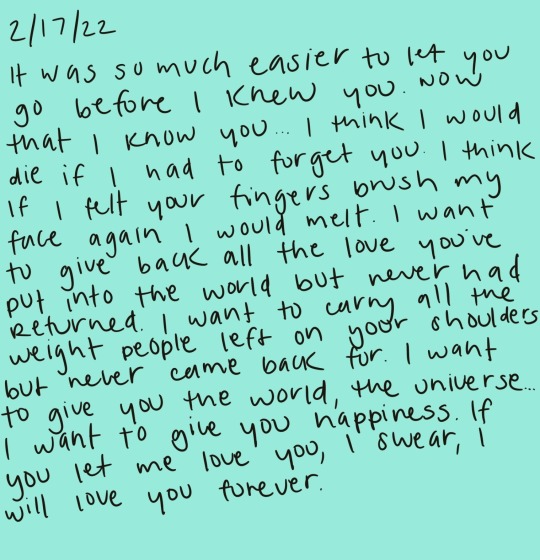 2/17/22
It was so much easier to let you
go before I knew you. Now
that I know you... I think I would
die if I had to forget you. I think
If I felt your fingers brush my
face again I would melt. I want
to give back all the love you've
put into the world but never had
returned. I want to carry all the
weight people left on your shoulders
but never came back for. I want
to give you the world, the universe...
I want to give you happiness. If
you let me love you, I swear, I
will love you forever.